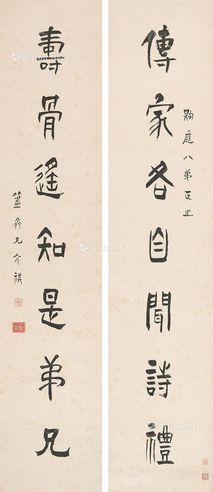 傳家各自聞詩禮
黝庭八弟正止
壽骨遙知是弟兄
簠齋兄介祺